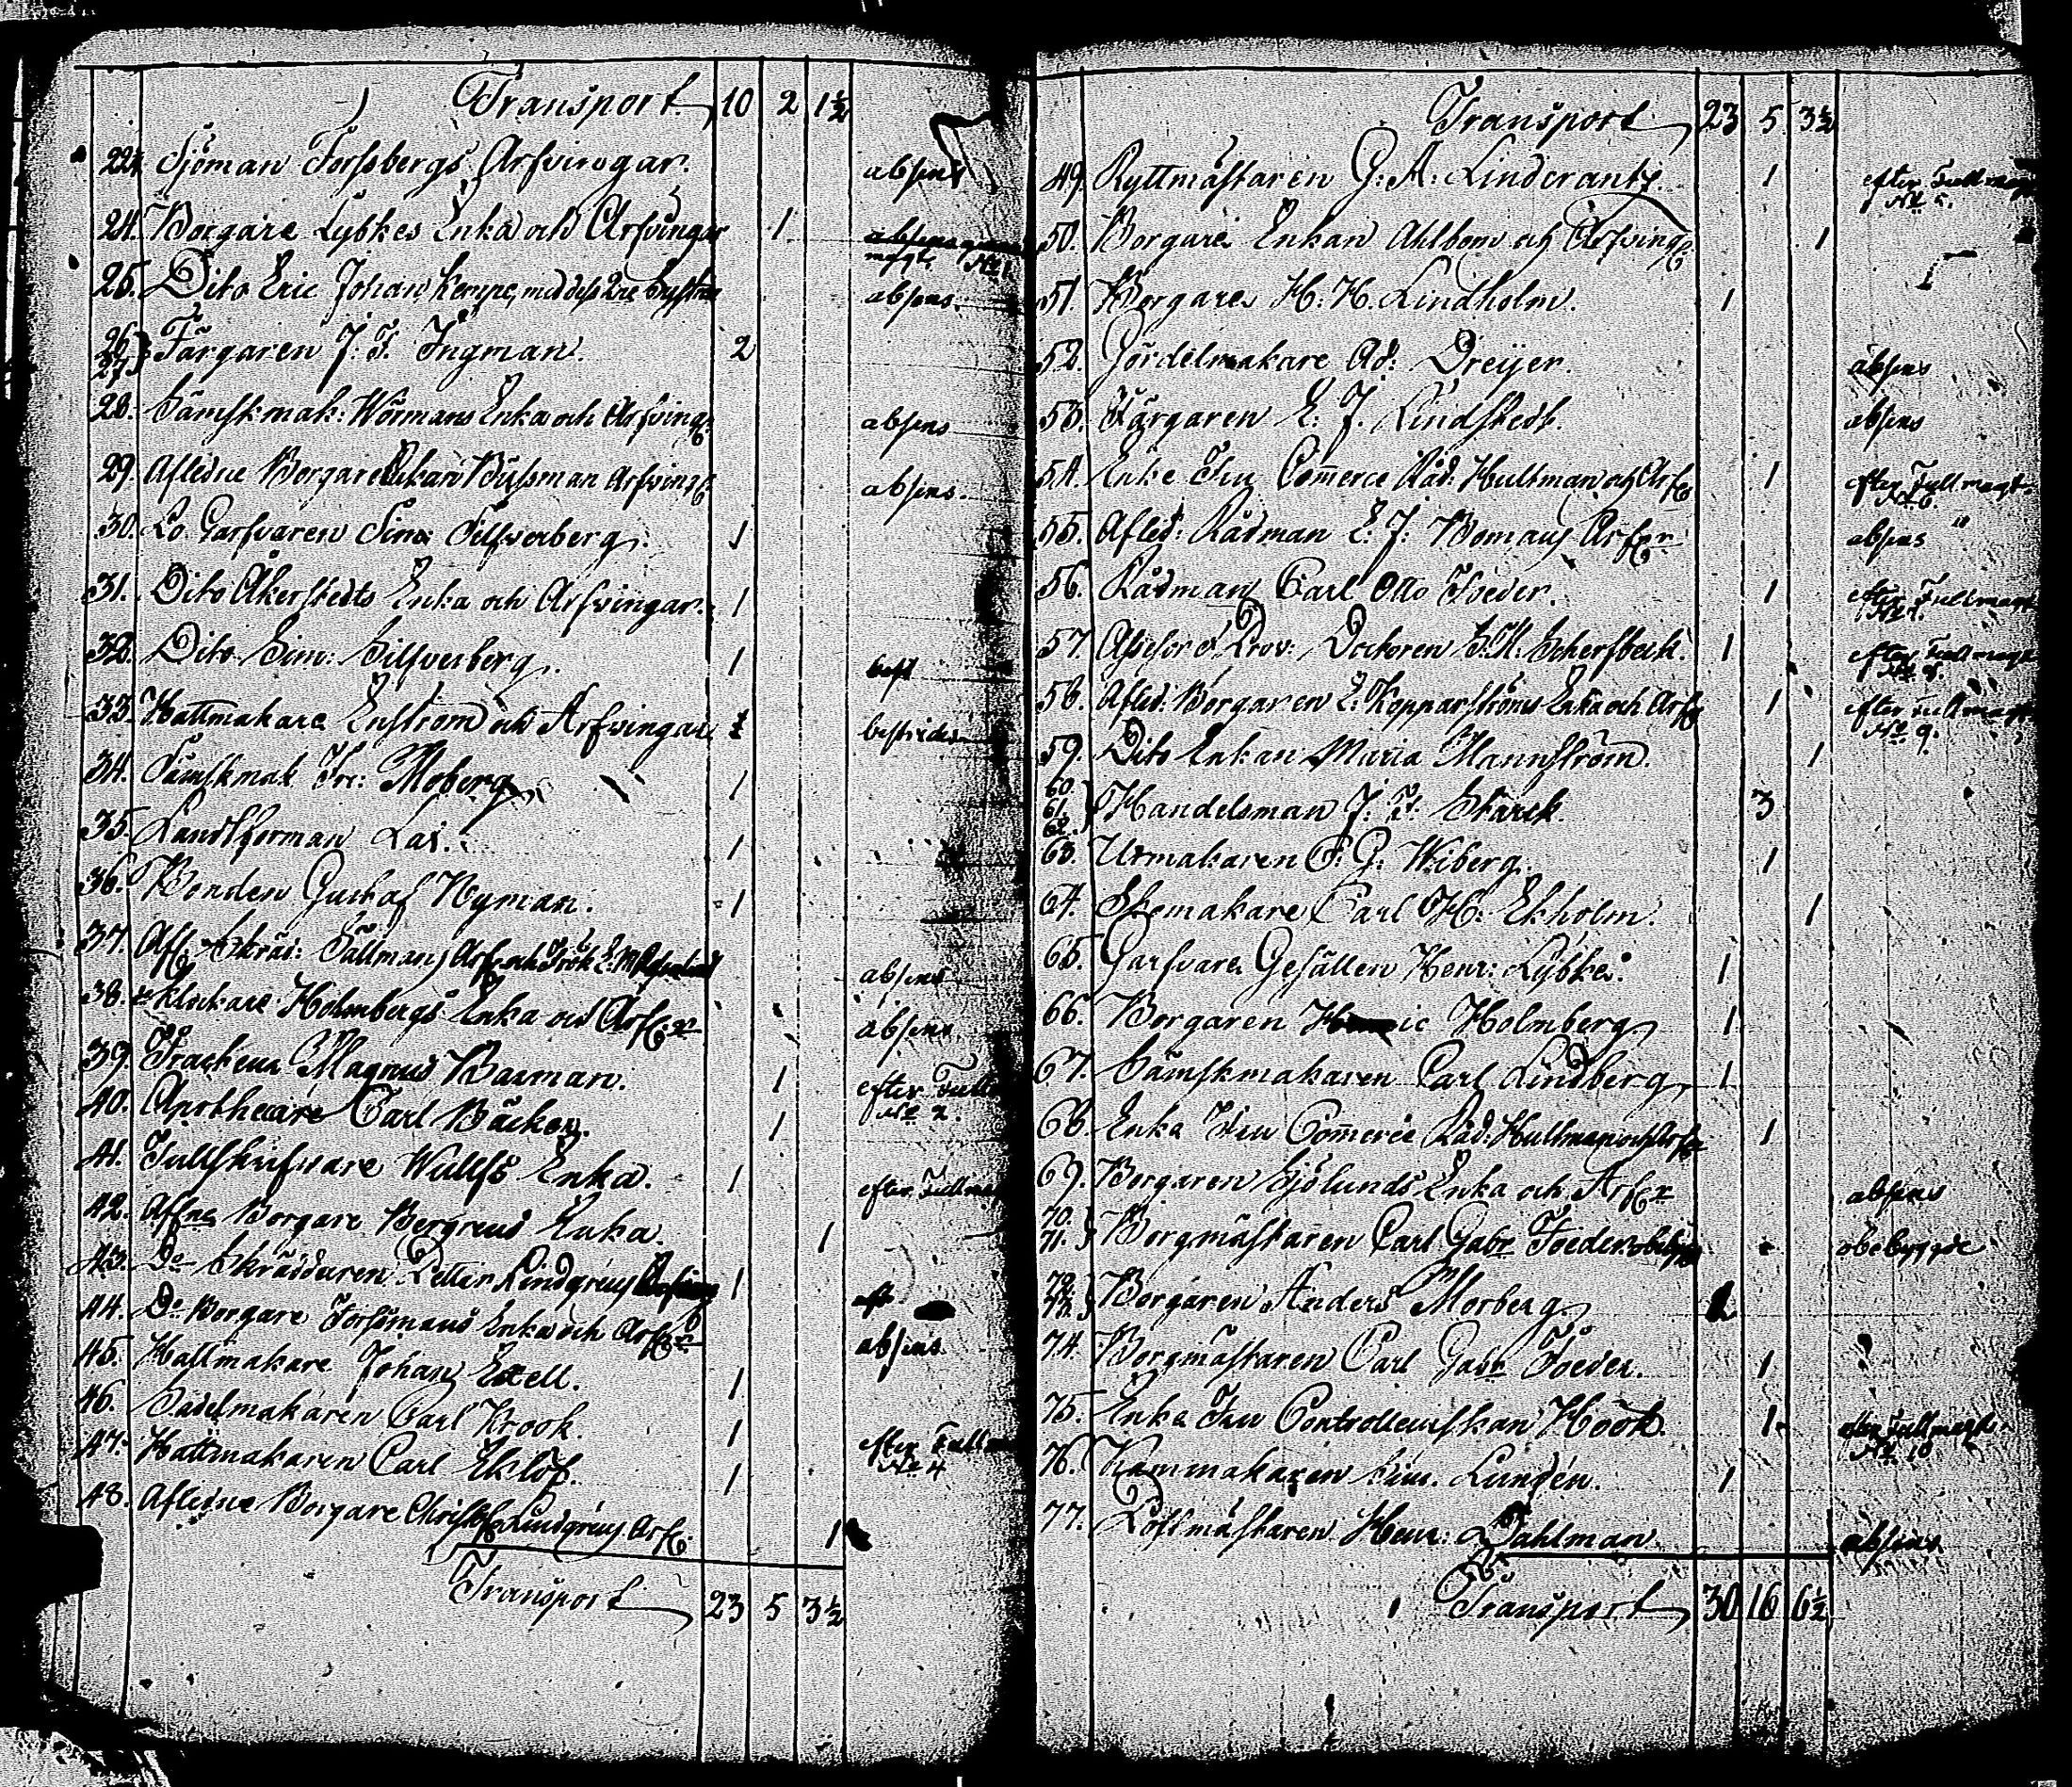 Transport 10 2 1½
22. Sjöman Forssbergs Arfvingar. absens
24. Borgare Lybkes Enka och Arfvingar 1
25. Dito Eric Johan Kempe, med dess absens.
26. 27. Färgaren J. F. Ingman. 2
28. Sämskmak: Wörmans Enka och Arfving absens
29. Afledne Borgare Enkan Bussman Arfving absens.
30. Lo Garfvaren Sim: Silfverberg. 1
31. Dito Åkerstedts Enka och Arfvingar. 1
32. Dito Sim: Silfverberg. 1
33. Hattmakare Enström och Arfvingar 1 bestrides
34. Sämskmak Fre: Moberg 1
35. Landtförman Lax. 1
36. Bonden Gustaf Nyman. 1
37. Afl. Skräd: Tällmans Arf. och absens
38. Klockare Holmbergs Enka och Arf. absens
39. Magnus Barman. 1 efter Fullm No 2.
40. Apothecare Carl Bäcker. 1
41. Tullskrifvare Wulffs Enka. 1 efter Fullm
42. Afne Borgare Bergreus Enka. 1
43. Do Skräddaren Petter Lindgrens 1
44. Do Borgare Forssmans Enka och Arf. absens
45. Hattmakare Johan Exell. 1
46. Sadelmakaren Carl Krook. 1
47. Hattmakaren Carl Eklöf. 1 efter Fullm No 4
48. Afledne Borgare Christof. Lindgrens Arf: 1
Transport 23 5 3½
Transport 23 5 3½
49. Ryttmästaren G: A: Linderantz. 1 efter Fullmagt No 5.
50. Borgare Enkan Ahlbom och Arfving 1
51. Borgare H: H: Lindholm. 1
52. Gördelmakare Ad: Dreijer. absens
53. Färgaren E: J. Lindstedt. absens
54. Enke Fru Commerce Råd: Hultman och Arf. 1 efter Fullmagt No 6.
55. Afled: Rådman E: J: Bomans Arf. absens
56. Rådman Carl Otto Foeder. 1 efter Fullmagt No 7.
57. Assessor o Prov: Doctoren Scherfbeck. 1 efter Fullmagt No 8.
58. Afled: Borgaren E: Kopparströms Enka och Arf. 1 efter Fullmagt No 9.
59. Dito Enkan Maria Mannström. 1
60. 61. 62. Handelsman J: F: Starck. 3
63. Urmakaren P: G: Wiberg. 1
64. Skomakare Carl H: Ekholm. 1
65. Garfvare Gesällen Henr: Lybke. 1
66. Borgaren Holmberg 1
67. Sämskmakaren Carl Lindberg. 1
68. Enka Fru Commerce Råd: Hultman och Arf. 1
69. Borgaren Sjölunds Enka och Arf. absens
70. 71. Borgmästaren Carl Gabr Foeder obebygde
72. 73. Borgaren Anders Morberg.
74. Borgmästaren Carl Gabr Foeder. 1
75. Enka Fru Controlleurskan Höök. 1 efter Fullmagt No 10
76. Kammakaren Sim. Lundén. 1
77. Postmästaren Henr: Dahlman. absens
Transport 30 16 6½